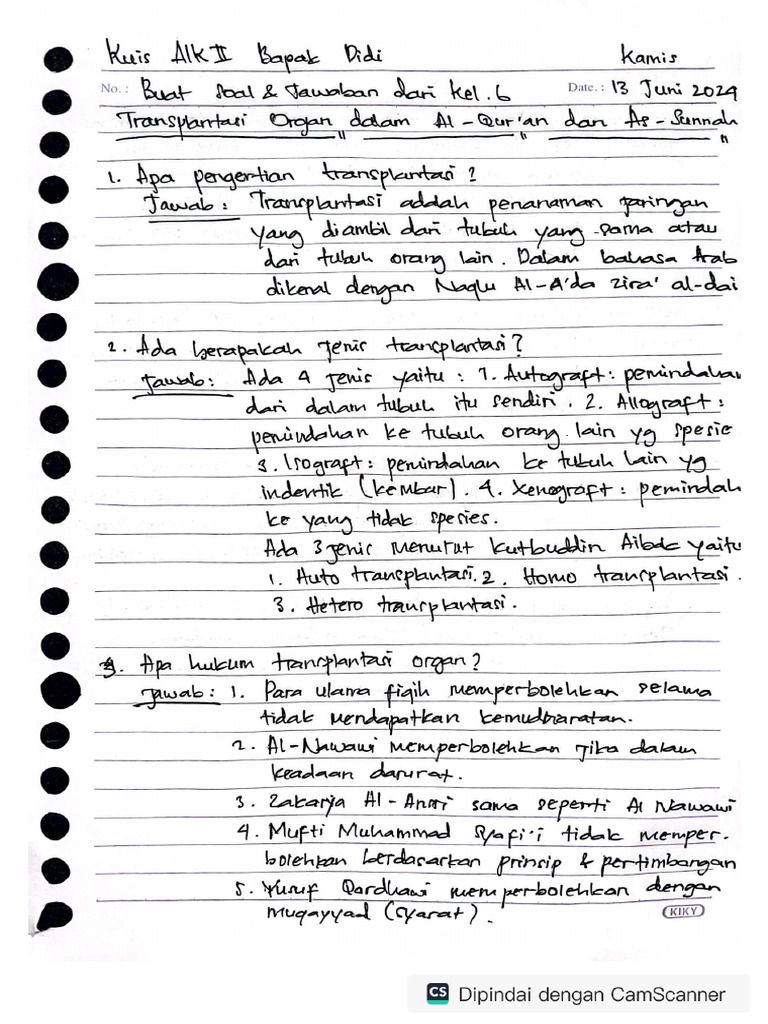 Kuis AIK II Bapak Didi Kamis
No.: Buat Soal & Jawaban dari Kel. 6 Date.: 13 Juni 2024
Transplantasi Organ dalam Al-Qur'an dan As-Sunnah
1. Apa pengertian transplantasi?
Jawab: Transplantasi adalah penanaman jaringan
yang diambil dari tubuh yang sama atau
dari tubuh orang lain. Dalam bahasa Arab
dikenal dengan Naqlu Al-A'da zira' al-dai
2. Ada berapakah jenis transplantasi?
Jawab: Ada 4 jenis yaitu: 1. Autograft: pemindahan
dari dalam tubuh itu sendiri. 2. Allograft:
pemindahan ke tubuh orang lain yg spesie
3. Isograft: pemindahan ke tubuh lain yg
indentik (kembar). 4. Xenograft: pemindah
ke yang tidak spesies.
Ada 3 jenis menurut Kutbuddin Aibak yaitu
1. Auto transplantasi. 2. Homo transplantasi.
3. Hetero transplantasi.
3. Apa hukum transplantasi organ?
Jawab: 1. Para ulama fiqih memperbolehkan selama
tidak mendapatkan kemudharatan.
2. Al-Nawawi memperbolehkan jika dalam
keadaan darurat.
3. Zakarja Al-Ansri sama seperti Al Nawawi
4. Mufti Muhammad Syafi'i tidak memper-
bolehkan berdasarkan prinsip & pertimbangan
5. Yusuf Qardhawi memperbolehkan dengan
muqayyad (syarat).
KIKY
CS Dipindai dengan CamScanner